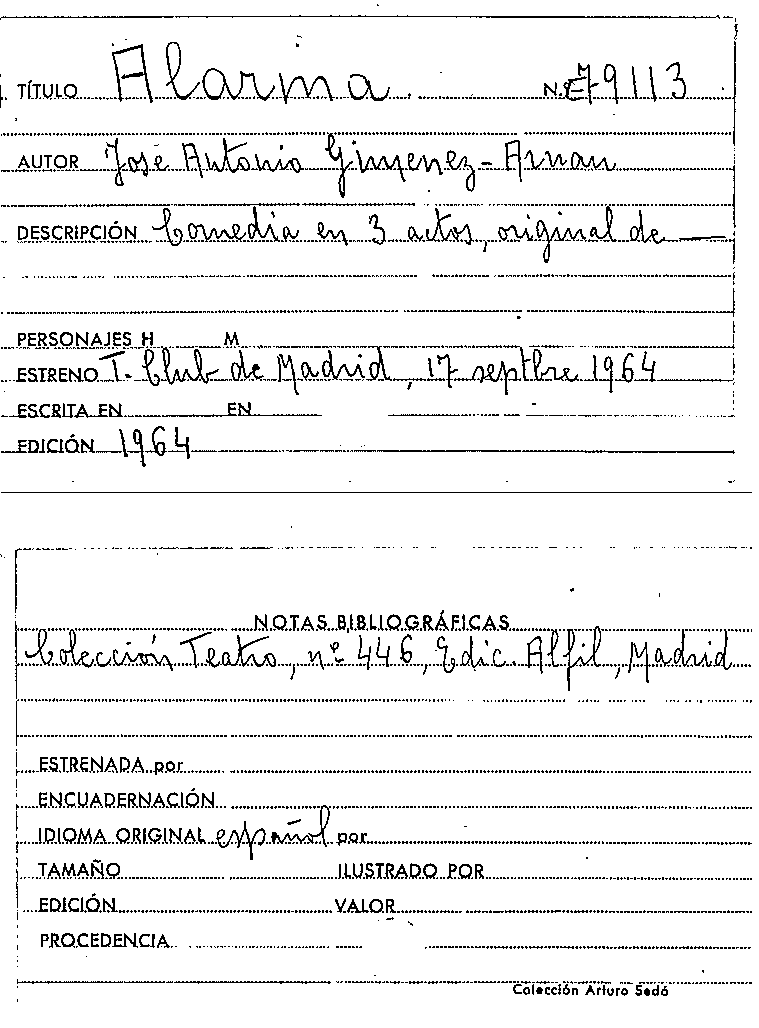 TÍTULO Alarma N.E 79113
AUTOR José Antonio Gimenez-Arnau
DESCRIPCIÓN Comedia en 3 actos, original de —
PERSONAJES H M
ESTRENO T. Club de Madrid, 17 septbre 1964
ESCRITA EN EN
EDICIÓN 1964
NOTAS BIBLIOGRÁFICAS
Colección Teatro, nº 446, Edic. Alfil, Madrid
ESTRENADA por
ENCUADERNACIÓN
IDIOMA ORIGINAL español por
TAMAÑO ILUSTRADO POR
EDICIÓN VALOR
PROCEDENCIA
Colección Arturo Sedó